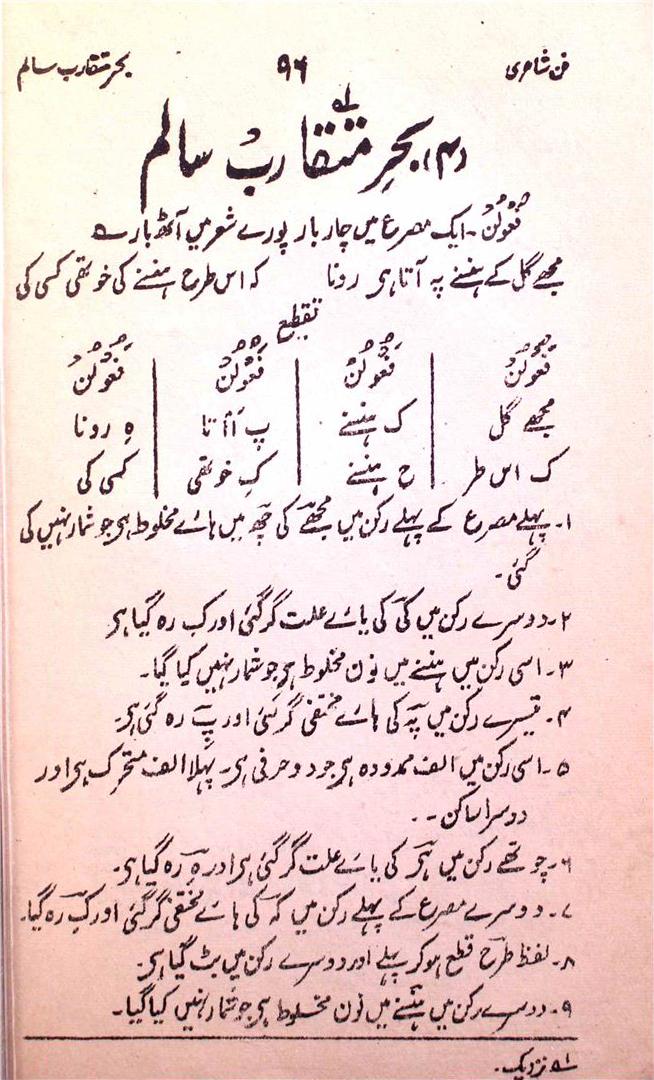 فن شاعری ۹۶ بحر متقارب سالم
(۴) بحرِ متقارب سالم ؎۱
فَعُولُن۔ ایک مصرع میں چار بار پورے شعر میں آٹھ بار ہے
مجھے گل کے ہنسنے پہ آتا ہی رونا کہ اس طرح ہنسنے کی خو تھی کسی کی
تقطیع
فَعُولُن فَعُولُن فَعُولُن فَعُولُن
مجھے گل ک ہنسنے پ اَاتا ہِ رونا
ک اس طر ح ہنسنے کِ خو تھی کسی کی
۱۔ پہلے مصرع کے پہلے رکن میں مجھے کی چھ میں ہائے مخلوط ہی جو شمار نہیں کی
گئی۔
۲۔ دوسرے رکن میں کی کی یائے علت گر گئی اور ک رہ گیا ہی
۳۔ اسی رکن میں ہنسنے میں نون مخلوط ہی جو شمار نہیں کیا گیا۔
۴۔ تیسرے رکن میں پہ کی ہائے مختفی گر گئی اور پِ رہ گئی ہی۔
۵۔ اسی رکن میں الف ممدودہ ہی جو دو حرفی ہی۔ پہلا الف متحرک ہی اور
دوسرا ساکن۔۔
۶۔ چوتھے رکن میں ہی کی یائے علت گر گئی ہی اور ہِ رہ گیا ہی۔
۷۔ دوسرے مصرع کے پہلے رکن میں کہ کی ہائے مختفی گر گئی اور ک رہ گیا۔
۸۔ لفظ طرح قطع ہو کر پہلے اور دوسرے رکن میں بٹ گیا ہی۔
۹۔ دوسرے رکن میں ہنسنے میں نون مخلوط ہی جو شمار نہیں کیا گیا۔
؎۱ نزدیک۔